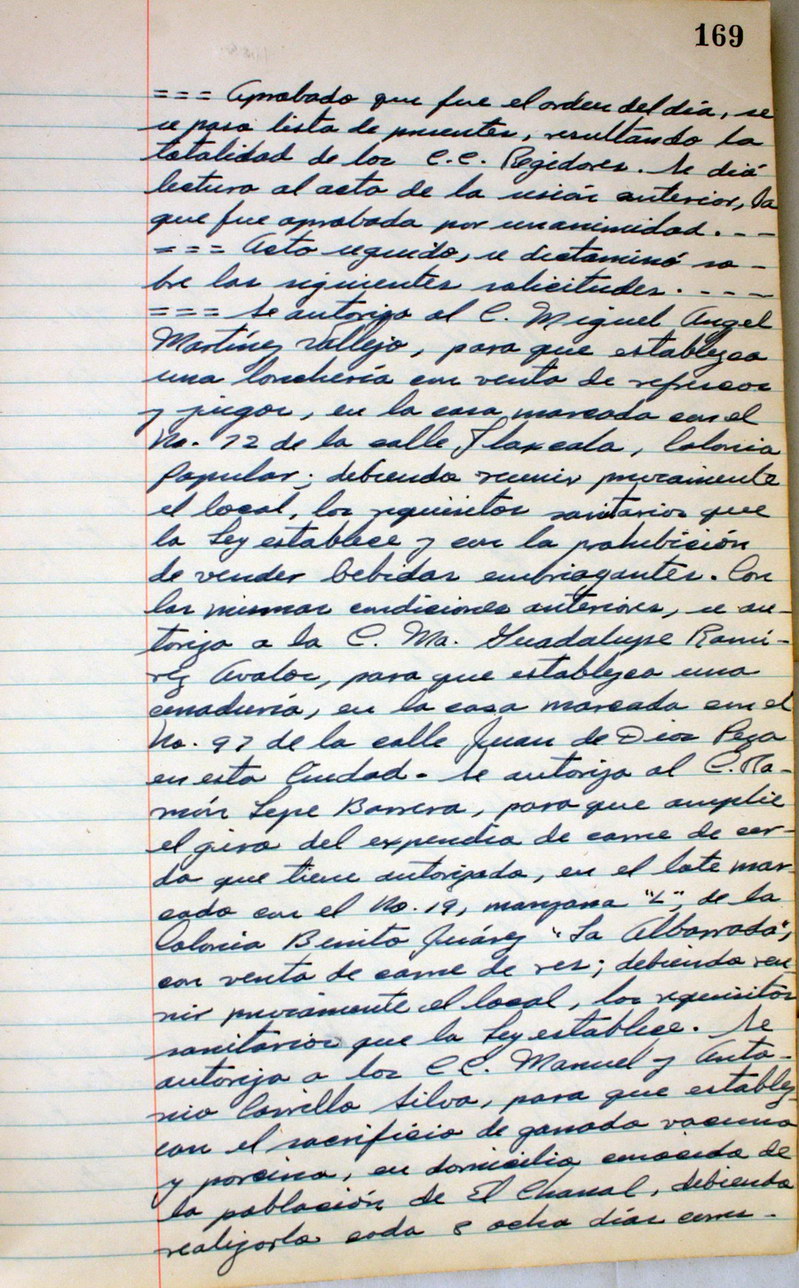 169
= = = Aprobado que fue el orden del día, se
se paso lista de presentes, resultando la
totalidad de los C.C. Regidores. Se dió
lectura al acta de la sesión anterior, la
que fue aprobada por unanimidad. - - -
= = = Acto seguido, se dictaminó so -
bre las siguientes solicitudes. - - - -
= = = Se autoriza al C. Miguel Angel
Martínez Vallejo, para que establezca
una lonchería con venta de refrescos
y jugos, en la casa marcada con el
No. 72 de la calle Tlaxcala, Colonia
Popular; debiendo reunir previamente
el local, los requisitos sanitarios que
la Ley establece y con la prohibición
de vender bebidas embriagantes. Con
las mismas condiciones anteriores, se au-
toriza a la C. Ma. Guadalupe Ramí-
rez Avalos, para que establezca una
cenaduría, en la casa marcada con el
No. 97 de la calle Juan de Dios Peza
en esta Ciudad. Se autoriza al C. Ra-
món Lepe Barrera, para que amplie
el giro del expendio de carne de cer-
do que tiene autorizado, en el lote mar-
cado con el No. 19, manzana "L", de la
Colonia Benito Juárez "La Albarrada",
con venta de carne de res; debiendo reu-
nir previamente el local, los requisitos
sanitarios que la Ley establece. Se
autoriza a los C.C. Manuel y Anto-
nio Carrillo Silva, para que establez-
can el sacrificio de ganado vacuno
y porcino, en domicilio conocido de
la población de El Chanal, debiendo
realizarlo cada 8 ocho días como -